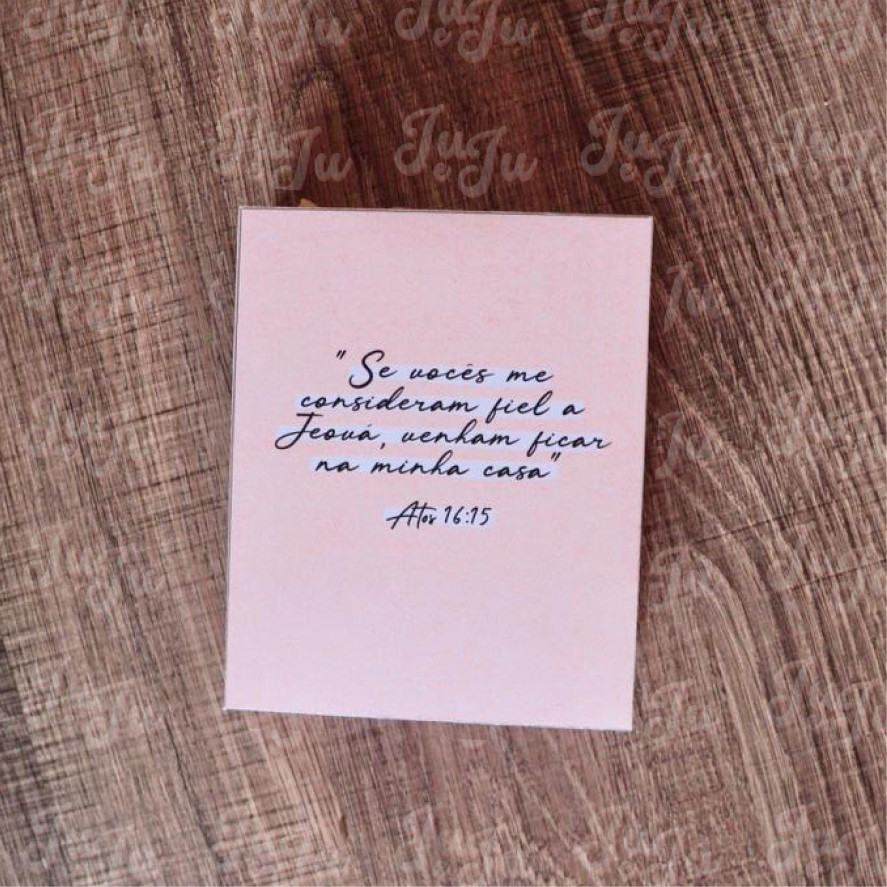 "Se vocês me
consideram fiel a
Jeová, venham ficar
na minha casa"
Atos 16:15
Ju e Ju